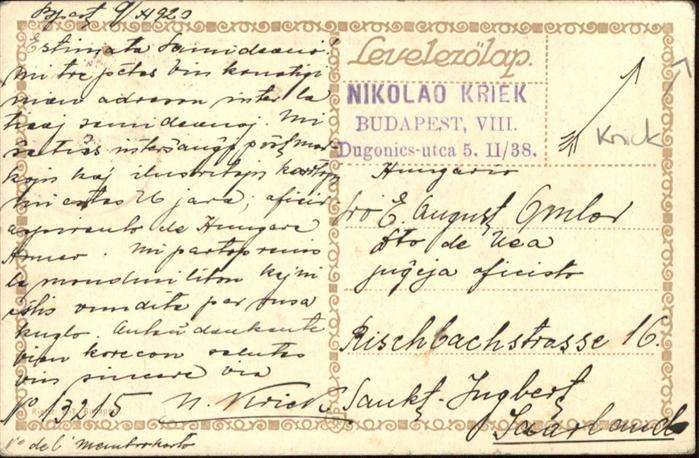 Bpest 9/XI 923
Estimata Samideano!
Mi tre petas vin konatigi
mian adreson inter la
tieaj samideanoj. Mi
ŝatus interŝanĝi poŝtmar-
kojn kaj ilustritajn kartojn
mi estas 26 jara; oficir
aspiranto de Hungara
Armeo. Mi partoprenis
la mondmiliton kaj mi
estis vundita per rusa
kuglo. Antaŭdankante
vian korecon salutas
vin sincere via
No 13215 N. Kriek
No de l' membrokarto
Levelezőlap.
NIKOLAO KRIEK
BUDAPEST, VIII.
Dugonics-utca 5. II/38.
Hungario
Kriek
E. August Omlor
Dto de Uea
juĝeja oficisto
Rischbachstrasse 16.
Sankt-Ingbert
Saarland